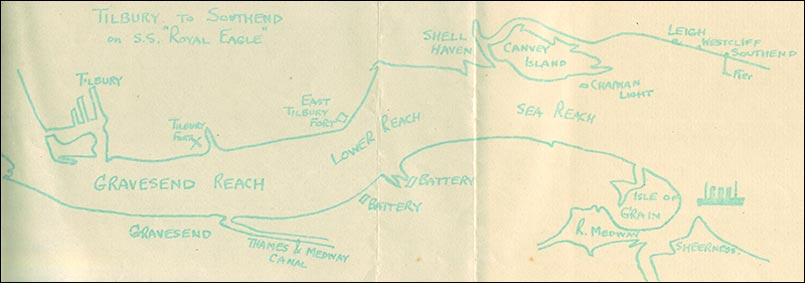 TILBURY TO SOUTHEND
on S.S. "ROYAL EAGLE"
TILBURY
TILBURY
FORT
EAST
TILBURY
FORT
SHELL
HAVEN
CANVEY
ISLAND
LEIGH
WESTCLIFF
SOUTHEND
PIER
CHAPMAN
LIGHT
SEA REACH
LOWER REACH
GRAVESEND REACH
BATTERY
BATTERY
GRAVESEND
THAMES & MEDWAY
CANAL
ISLE OF
GRAIN
R. MEDWAY
SHEERNESS.